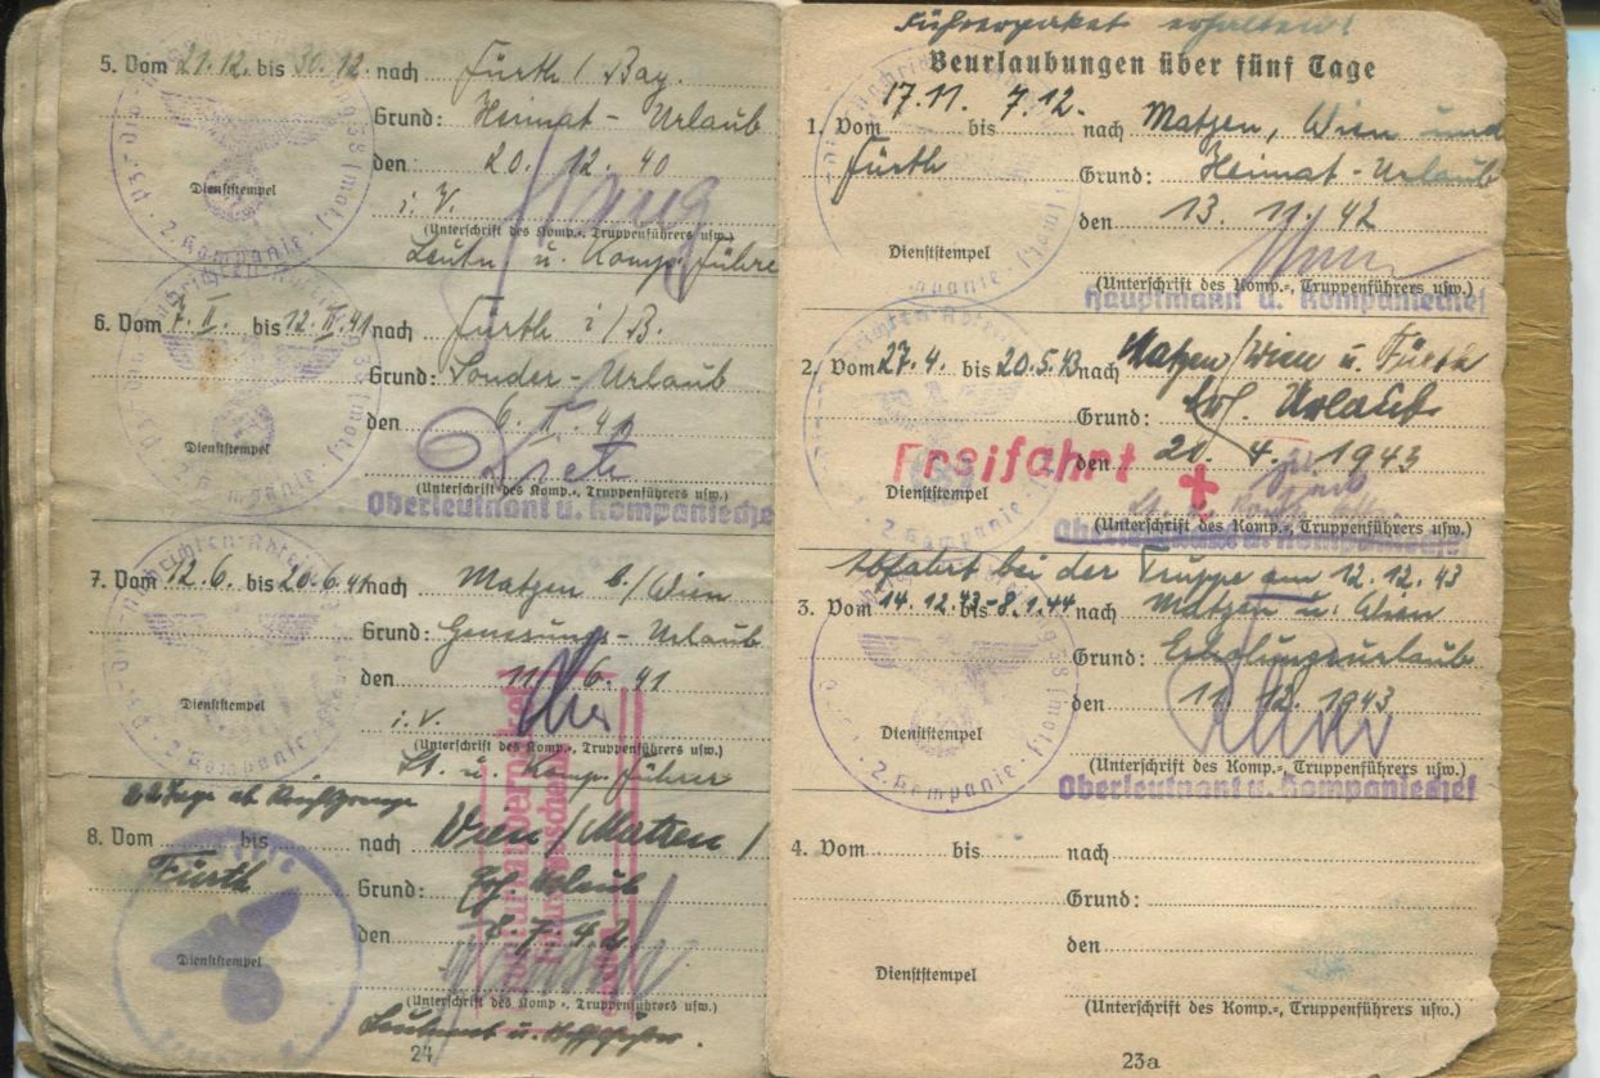 5. Vom 21.12. bis 30.12. nach Fürth / Bay.
Grund: Heimat-Urlaub
den 20. 12. 40
Dienststempel
i. V.
(Unterschrift des Komp.-, Truppenführers usw.)
Leutn u. Komp. Führe
6. Vom 7. II. bis 12. II. 41 nach Fürth i/B.
Grund: Sonder-Urlaub
den 6. II. 41
Dienststempel
(Unterschrift des Komp.-, Truppenführers usw.)
Oberleutnant u. Kompaniechef
7. Vom 12.6. bis 20.6.41 nach Matzen b./Wien
Grund: Genesungs-Urlaub
den 11. 6. 41
Dienststempel
i. V.
(Unterschrift des Komp.-, Truppenführers usw.)
Lt. u. Komp. Führer
22 Tage ab Reichsgrenze
8. Vom bis nach Wien / Matzen /
Fürth Grund: Urlaub
den 8. 7. 42
Dienststempel
(Unterschrift des Komp.-, Truppenführers usw.)
Leutnant u.
24
2. Kompanie
Führerpaket erhalten!
Beurlaubungen über fünf Tage
1. Vom 17.11. bis 7.12. nach Matzen, Wien und
Fürth Grund: Heimat-Urlaub
den 13. 11. 42
Dienststempel
(Unterschrift des Komp.-, Truppenführers usw.)
Hauptmann u. Kompaniechef
2. Vom 27.4. bis 20.5.43 nach Matzen/Wien u. Fürth
Grund: Urlaub
Freifahrt
den 21. 4. 1943
Dienststempel
(Unterschrift des Komp.-, Truppenführers usw.)
Oberleutnant u. Kompaniechef
Abfahrt bei der Truppe am 12.12.43
3. Vom 14.12.43 bis 8.1.44 nach Matzen u. Wien
Grund: Erholungsurlaub
den 11. 12. 1943
Dienststempel
(Unterschrift des Komp.-, Truppenführers usw.)
Oberleutnant u. Kompaniechef
4. Vom bis nach
Grund:
den
Dienststempel
(Unterschrift des Komp.-, Truppenführers usw.)
23a